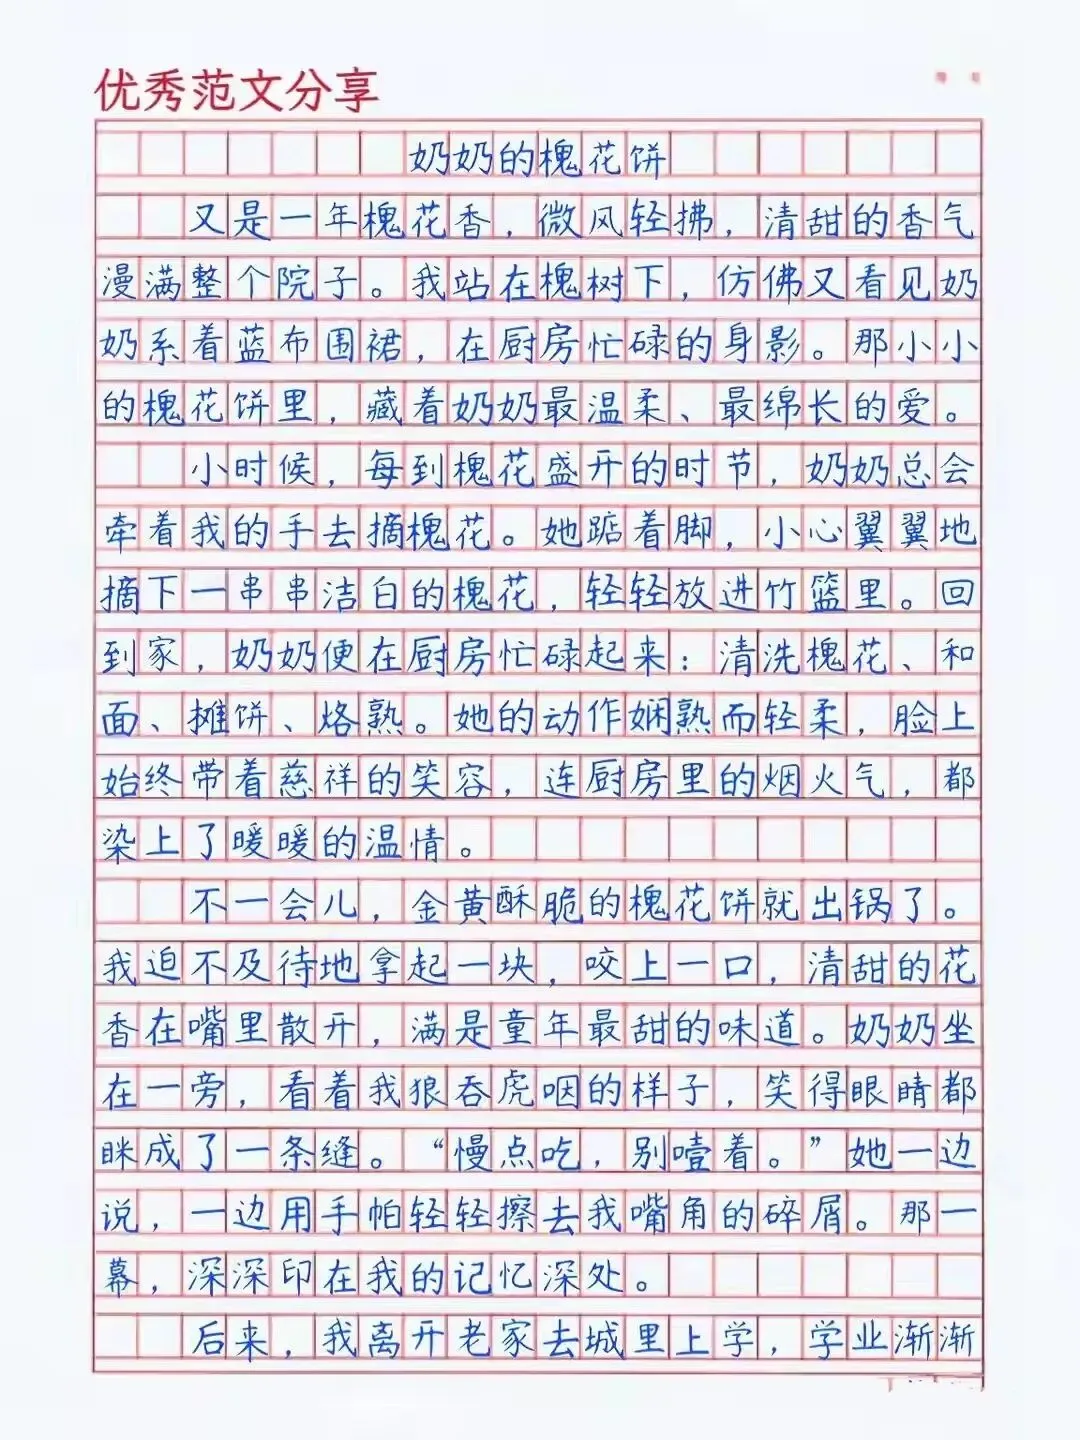 优秀范文分享
奶奶的槐花饼
又是一年槐花香，微风轻拂，清甜的香气
漫满整个院子。我站在槐树下，仿佛又看见奶
奶系着蓝布围裙，在厨房忙碌的身影。那小小
的槐花饼里，藏着奶奶最温柔、最绵长的爱。
小时候，每到槐花盛开的时节，奶奶总会
牵着我的手去摘槐花。她踮着脚，小心翼翼地
摘下一串串洁白的槐花，轻轻放进竹篮里。回
到家，奶奶便在厨房忙碌起来：清洗槐花、和
面、摊饼、烙熟。她的动作娴熟而轻柔，脸上
始终带着慈祥的笑容，连厨房里的烟火气，都
染上了暖暖的温情。
不一会儿，金黄酥脆的槐花饼就出锅了。
我迫不及待地拿起一块，咬上一口，清甜的花
香在嘴里散开，满是童年最甜的味道。奶奶坐
在一旁，看着我狼吞虎咽的样子，笑得眼睛都
眯成了一条缝。“慢点吃，别噎着。”她一边
说，一边用手帕轻轻擦去我嘴角的碎屑。那一
幕，深深印在我的记忆深处。
后来，我离开老家去城里上学，学业渐渐